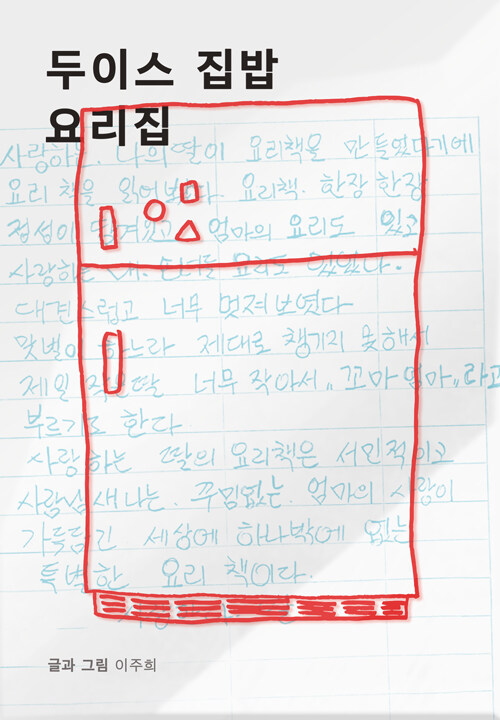 두이스 집밥
요리집
사랑하는 나의 딸이 요리책을 만들었다기에
요리 책을 읽어보았다 요리책 한장 한장
정성이 담겨있고 엄마의 요리도 있고
사랑하는 내 손녀들 요리도 있었다.
대견스럽고 너무 멋져보였다
맞벌이 하느라 제대로 챙기지 못해서
제일 작은딸 너무 작아서 "꼬마엄마"라고
부르기도 한다
사랑하는 딸의 요리책은 서민적이고
사람냄새나는. 꾸밈없는. 엄마의 사랑이
가득담긴 세상에 하나밖에 없는
특별한 요리 책이다.
글과 그림 이주희